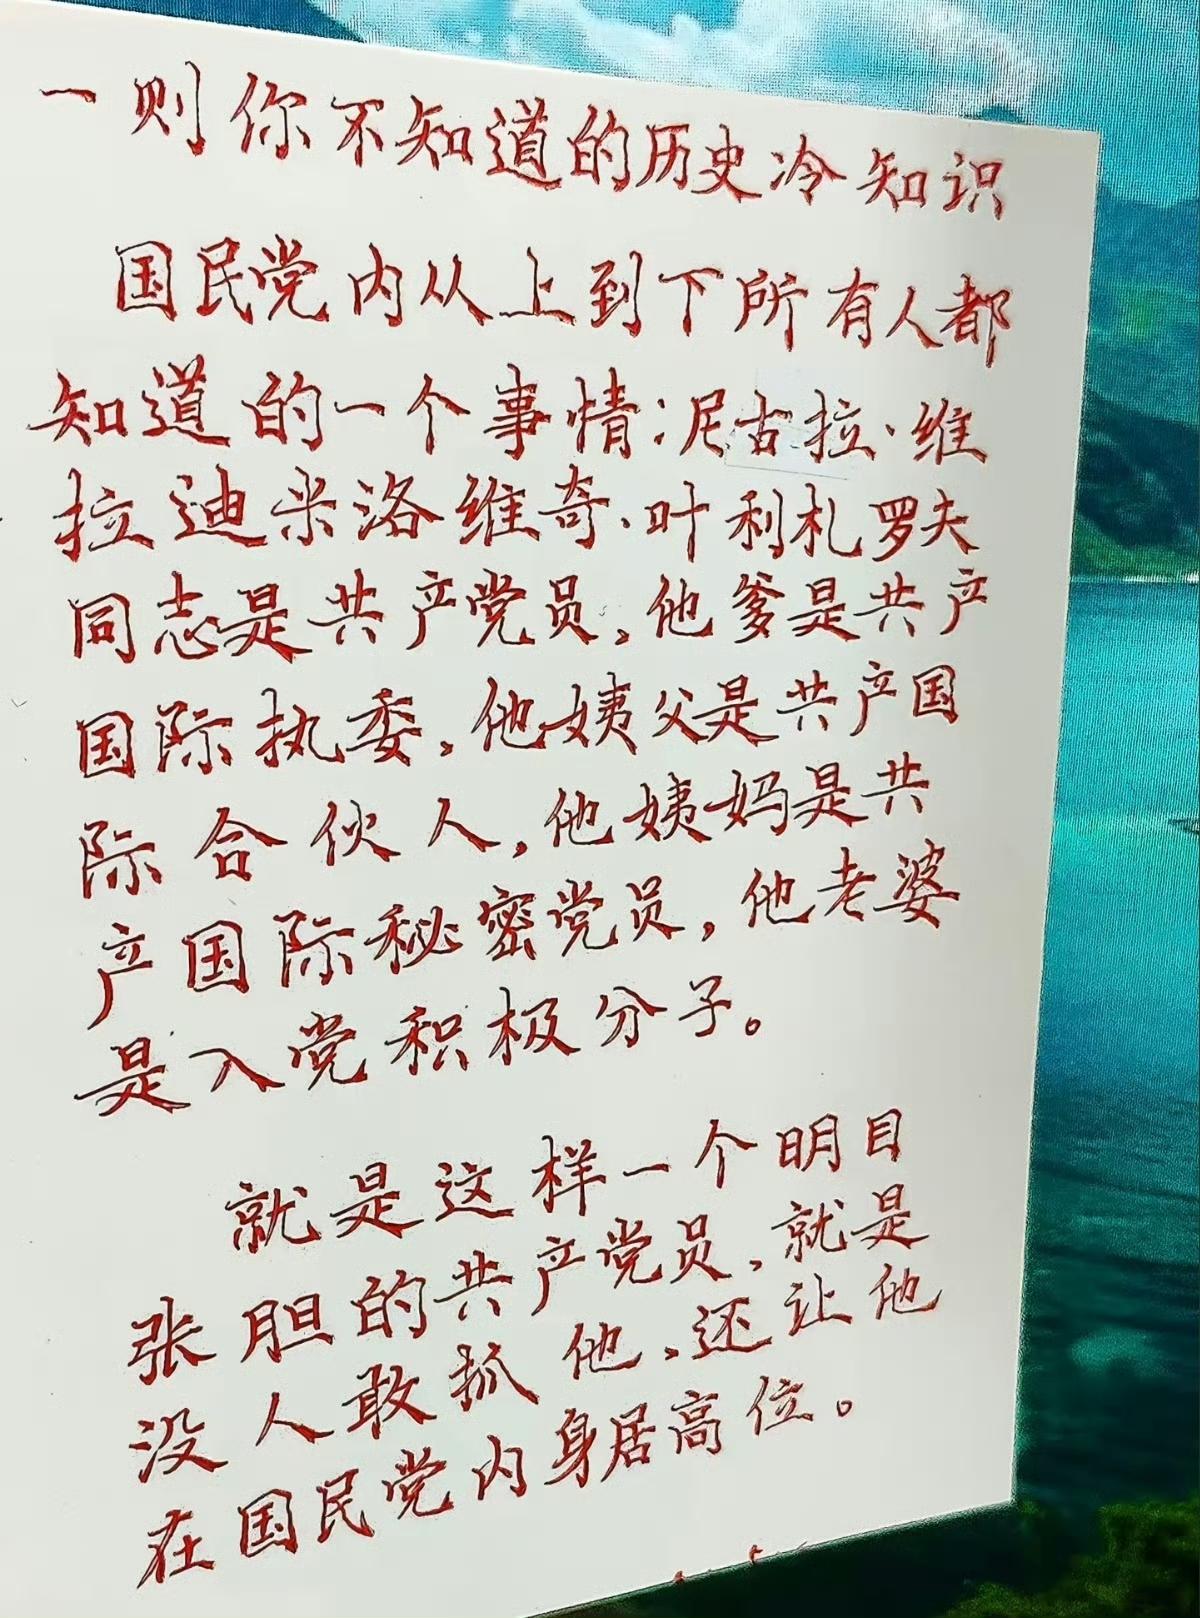 一则你不知道的历史冷知识
国民党内从上到下所有人都
知道的一个事情：尼古拉·维
拉迪米洛维奇·叶利札罗夫
同志是共产党员，他爹是共产
国际执委，他姨父是共产国
际合伙人，他姨妈是共
产国际秘密党员，他老婆
是入党积极分子。
就是这样一个明目
张胆的共产党员，就是
没人敢抓他，还让他
在国民党内身居高位。